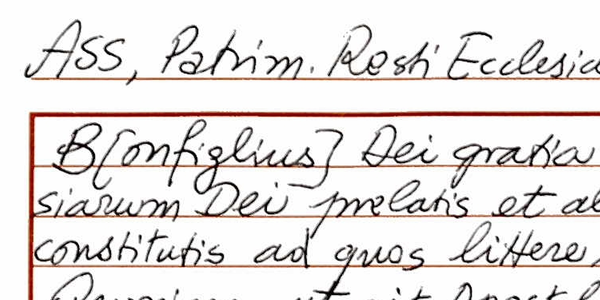 ASS, Patrim. Resti Ecclesia
B[onfiglius] Dei gratia
siarum Dei prelatis et al
constitutis ad quos littere,
ut sit Apost